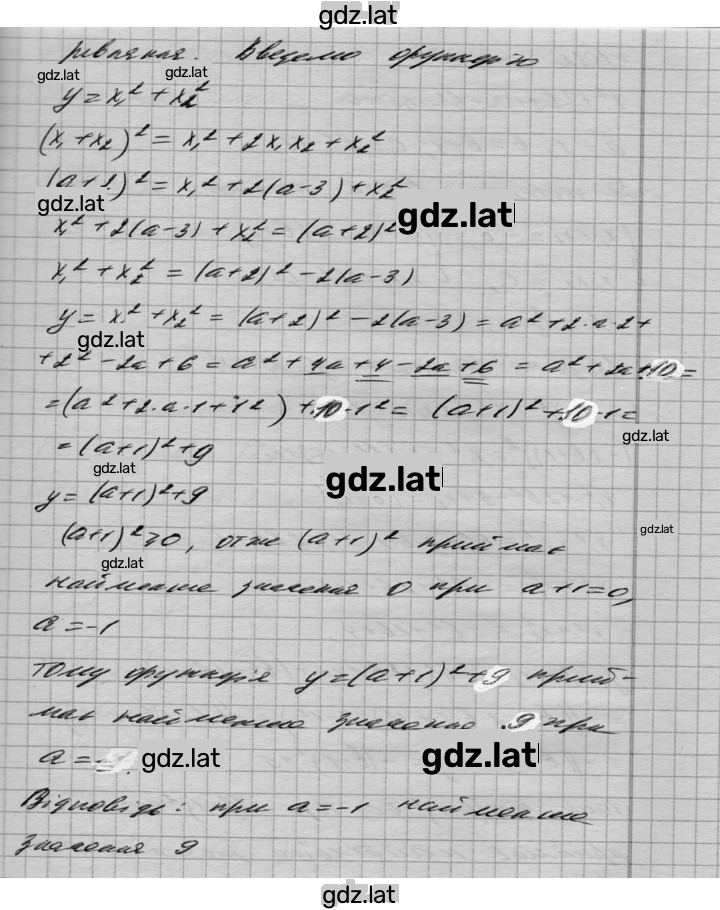 gdz.latь
рівняння. Введемо функцію
gdz.lat gdz.lat
y = x₁² + x₂²
(x₁ + x₂)² = x₁² + 2x₁x₂ + x₂²
(a + 2)² = x₁² + 2(a-3) + x₂²
gdz.lat
gdz.lat
x₁² + 2(a-3) + x₂² = (a+2)²
x₁² + x₂² = (a+2)² - 2(a-3)
gdz.lat
y = x₁² + x₂² = (a+2)² - 2(a-3) = a² + 2·a·2 +
gdz.lat
+ 2² - 2a + 6 = a² + 4a + 4 - 2a + 6 = a² + 2a + 10 =
= (a² + 2·a·1 + 1²) + 10 - 1² = (a+1)² + 10 - 1 =
gdz.lat
= (a+1)² + 9
gdz.lat
gdz.lat
y = (a+1)² + 9
(a+1)² ≥ 0, отже (a+1)² приймає
gdz.lat
gdz.lat
найменше значення 0 при a+1=0,
a = -1
Тому функція y = (a+1)² + 9 прий-
має найменше значення 9 при
a = -1.
gdz.lat
gdz.lat
Відповідь: при a = -1 найменше
значення 9
gdz.lat